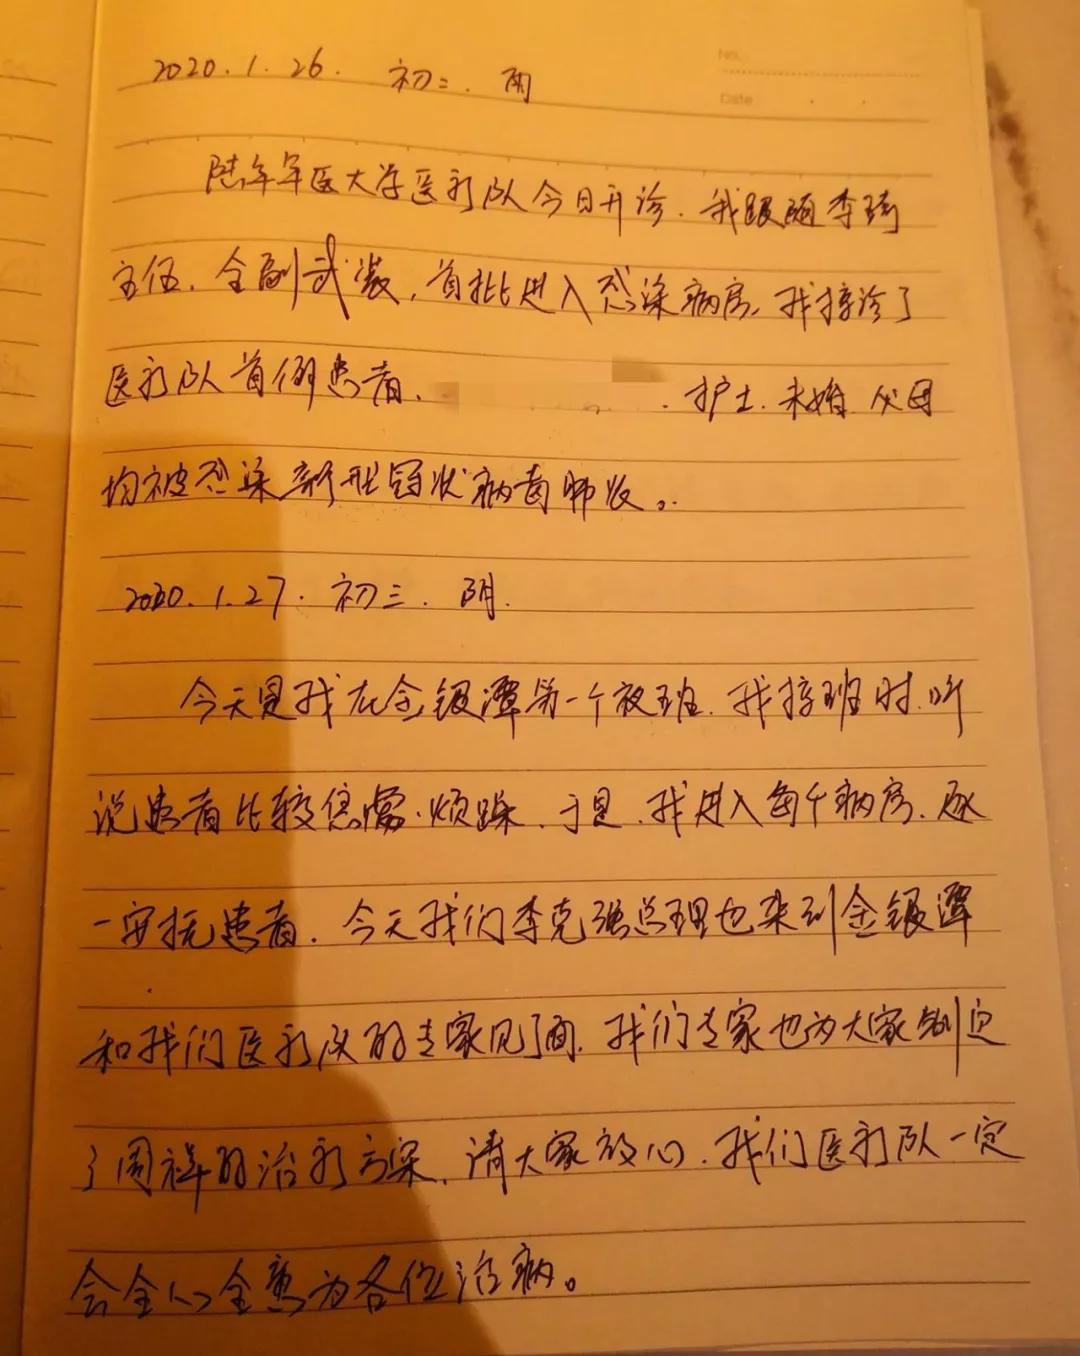 No.
Date
2020.1.26. 初二. 阴
陆军军医大学医疗队今日开诊.我跟随李琦
主任.全副武装,首批进入感染病房.我接诊了
医疗队首例患者. .护士.未婚 父母
均被感染新型冠状病毒肺炎。
2020.1.27. 初三. 阴.
今天是我在金银潭第一个夜班.我接班时.听
说患者比较焦虑.烦躁.于是.我进入每个病房.逐
一安抚患者.今天我们李克强总理也来到金银潭
和我们医疗队的专家见了面.我们专家也为大家制定
了周祥的治疗方案.请大家放心.我们医疗队一定
会全心全意为各位治病。